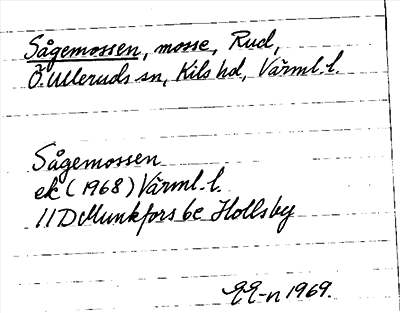 Sågemossen, mosse, Rud,
Ö. Ulleruds sn, Kils hd, Värml. l.
Sågemossen
ek (1968) Värml. l.
11D Munkfors 6e Hollsby
1969.